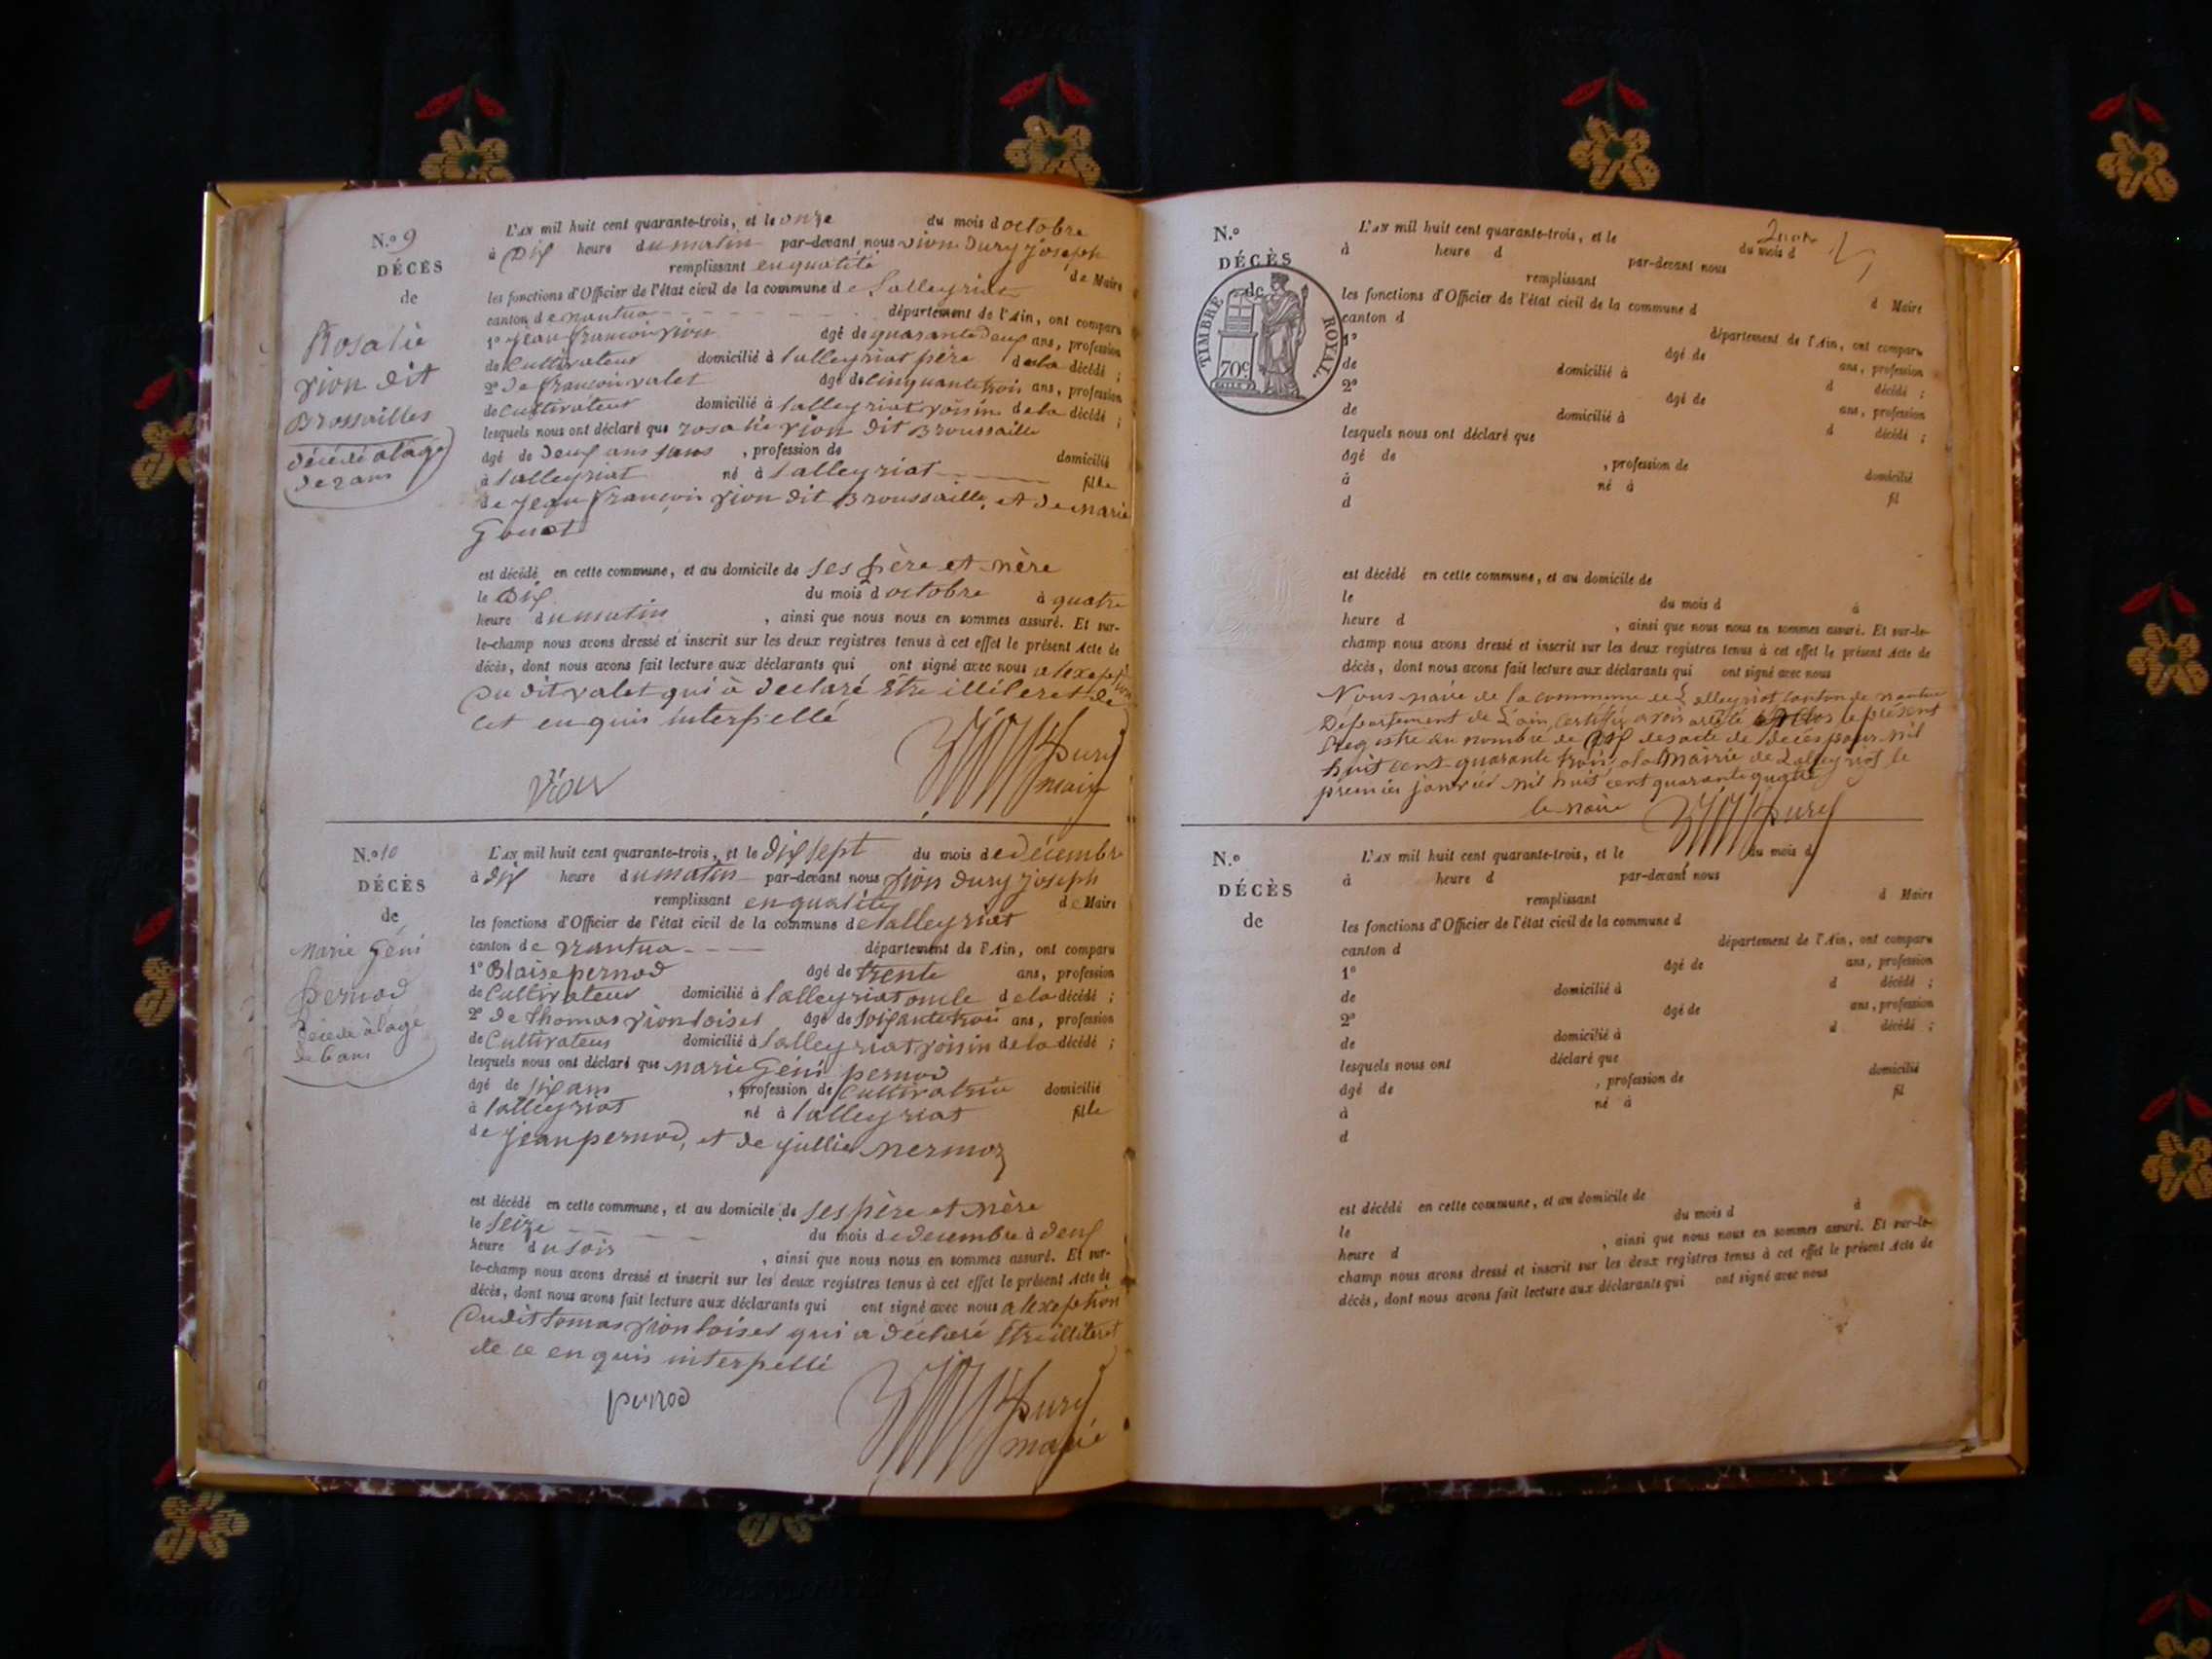 N.o 9
DÉCÈS
de
Rosalie
vion dit
Brossailles
décédé alage
de 2 ans
L'AN mil huit cent quarante-trois, et le onze du mois d octobre
à Dix heure du matin par-devant nous vion Dury joseph
remplissant en qualité de Maire
les fonctions d'Officier de l'état civil de la commune de Lalleyriat
canton de nantua département de l'Ain, ont comparu
1º jean françois vion âgé de quarante deux ans, profession
de Cultivateur domicilié à lalleyriat père de la décédé ;
2º de françois valet âgé de cinquante trois ans, profession
de cultivateur domicilié à lalleyriat voisin de la décédé ;
lesquels nous ont déclaré que rosalie vion dit Broussaille
âgé de Deux ans sans , profession de domicilié
à lalleyriat né à lalleyriat fille
de jean françois vion dit Broussaille, et de marie
est décédé en cette commune, et au domicile de ses père et mère
le Dix du mois d octobre à quatre
heure du matin , ainsi que nous nous en sommes assuré. Et sur-
le-champ nous avons dressé et inscrit sur les deux registres tenus à cet effet le présent Acte de
décès, dont nous avons fait lecture aux déclarants qui ont signé avec nous
Du dit valet qui à déclaré Etre illiteret de
cet enquis interpellé
Dury
maire
N.o 10
DÉCÈS
de
Marie Géni
pernod
décédé à lage
de 6 ans
L'AN mil huit cent quarante-trois, et le dix sept du mois de décembre
à dix heure du matin par-devant nous vion Dury joseph
remplissant en qualité de Maire
les fonctions d'Officier de l'état civil de la commune de lalleyriat
canton de nantua département de l'Ain, ont comparu
1º Blaise pernod âgé de trente ans, profession
de Cultivateur domicilié à lalleyriat oncle de la décédé ;
2º de thomas vion loisel âgé de soixante trois ans, profession
de Cultivateur domicilié à lalleyriat voisin de la décédé ;
lesquels nous ont déclaré que marie Géni pernod
âgé de six ans , profession de Cultivatrice domicilié
à lalleyriat né à lalleyriat fille
de jean pernod, et de jullie nermoz
est décédé en cette commune, et au domicile de ses père et mère
le seize du mois de decembre à deux
heure du soir , ainsi que nous nous en sommes assuré. Et sur-
le-champ nous avons dressé et inscrit sur les deux registres tenus à cet effet le présent Acte de
décès, dont nous avons fait lecture aux déclarants qui ont signé avec nous a lexeption
Du dit tomas vion loisel qui a déclaré Etre illiteret
de ce enquis interpellé
pernod
Dury
maire
N.o
DÉCÈS
de
TIMBRE ROYAL
70c
L'AN mil huit cent quarante-trois, et le du mois d
à heure d par-devant nous
remplissant d Maire
les fonctions d'Officier de l'état civil de la commune d
canton d département de l'Ain, ont comparu
1º âgé de ans, profession
de domicilié à d décédé ;
2º âgé de ans, profession
de domicilié à d décédé ;
lesquels nous ont déclaré que
âgé de , profession de domicilié
à né à fil
d
est décédé en cette commune, et au domicile de
le du mois d à
heure d , ainsi que nous nous en sommes assuré. Et sur-le-
champ nous avons dressé et inscrit sur les deux registres tenus à cet effet le présent Acte de
décès, dont nous avons fait lecture aux déclarants qui ont signé avec nous
Nous maire de la commune de Lalleyriat canton de nantua
Département de L'ain, certifie avoir arlèté le présent
registre au nombre de dix des acte de décès pour mil
huit cent quarante trois, a la Mairie de Lalleyriat le
premier janvier mil huit cent quarante quatre
le maire Dury
N.o
DÉCÈS
de
L'AN mil huit cent quarante-trois, et le du mois d
à heure d par-devant nous
remplissant d Maire
les fonctions d'Officier de l'état civil de la commune d
canton d département de l'Ain, ont comparu
1º âgé de ans, profession
de domicilié à d décédé ;
2º âgé de ans, profession
de domicilié à d décédé ;
lesquels nous ont déclaré que
âgé de , profession de domicilié
à né à fil
d
est décédé en cette commune, et au domicile de
le du mois d à
heure d , ainsi que nous nous en sommes assuré. Et sur-le-
champ nous avons dressé et inscrit sur les deux registres tenus à cet effet le présent Acte de
décès, dont nous avons fait lecture aux déclarants qui ont signé avec nous